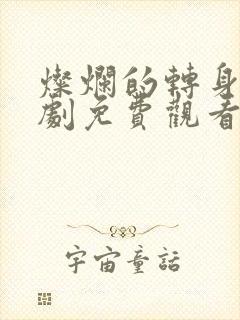 燦爛的轉身
劇免費觀看
宇宙童話